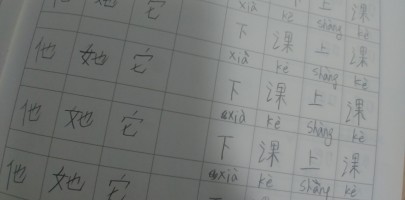 他 她 它 下 上 课
xià kè shàng kè
他 她 它 下 课 上 课
xià kè shàng kè
他 她 它 下 课 上 课
xià kè shàng kè
他 她 它 下 课 上 课
xià kè shàng kè